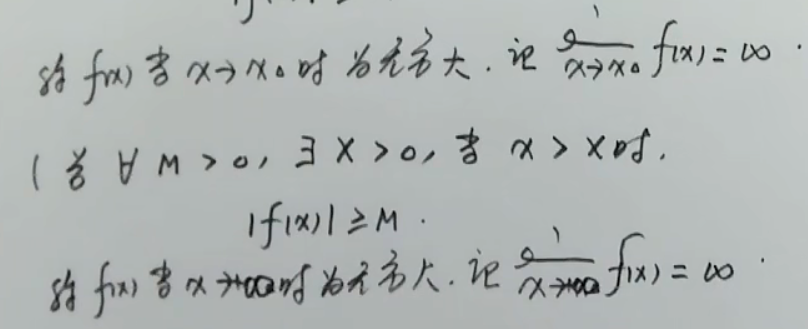 |f(x)| ≥
称 f(x) 当 x→x₀ 时 为无穷大. 记 lim x→x₀ f(x) = ∞.
(若 ∀ M > 0, ∃ X > 0, 当 x > X 时,
|f(x)| ≥ M.
称 f(x) 当 x→+∞ 时 为无穷大. 记 lim x→+∞ f(x) = ∞.